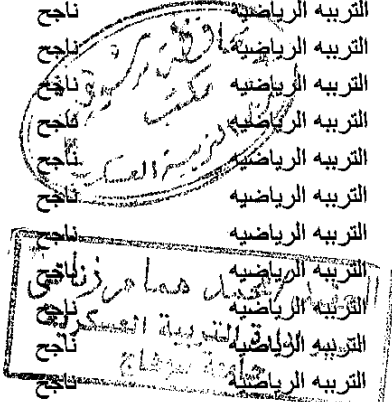 التربيه الرياضيه ناجح
التربيه الرياضيه ناجح
التربيه الرياضيه ناجح
التربيه الرياضيه ناجح
التربيه الرياضيه ناجح
التربيه الرياضيه ناجح
التربيه الرياضيه ناجح
التربيه الرياضيه ناجح
التربيه الرياضيه ناجح
التربيه الرياضيه ناجح
التربيه الرياضيه ناجح
مكتب
التربية العسكرية
محمد همام
التربية العسكرية
جامعة سوهاج